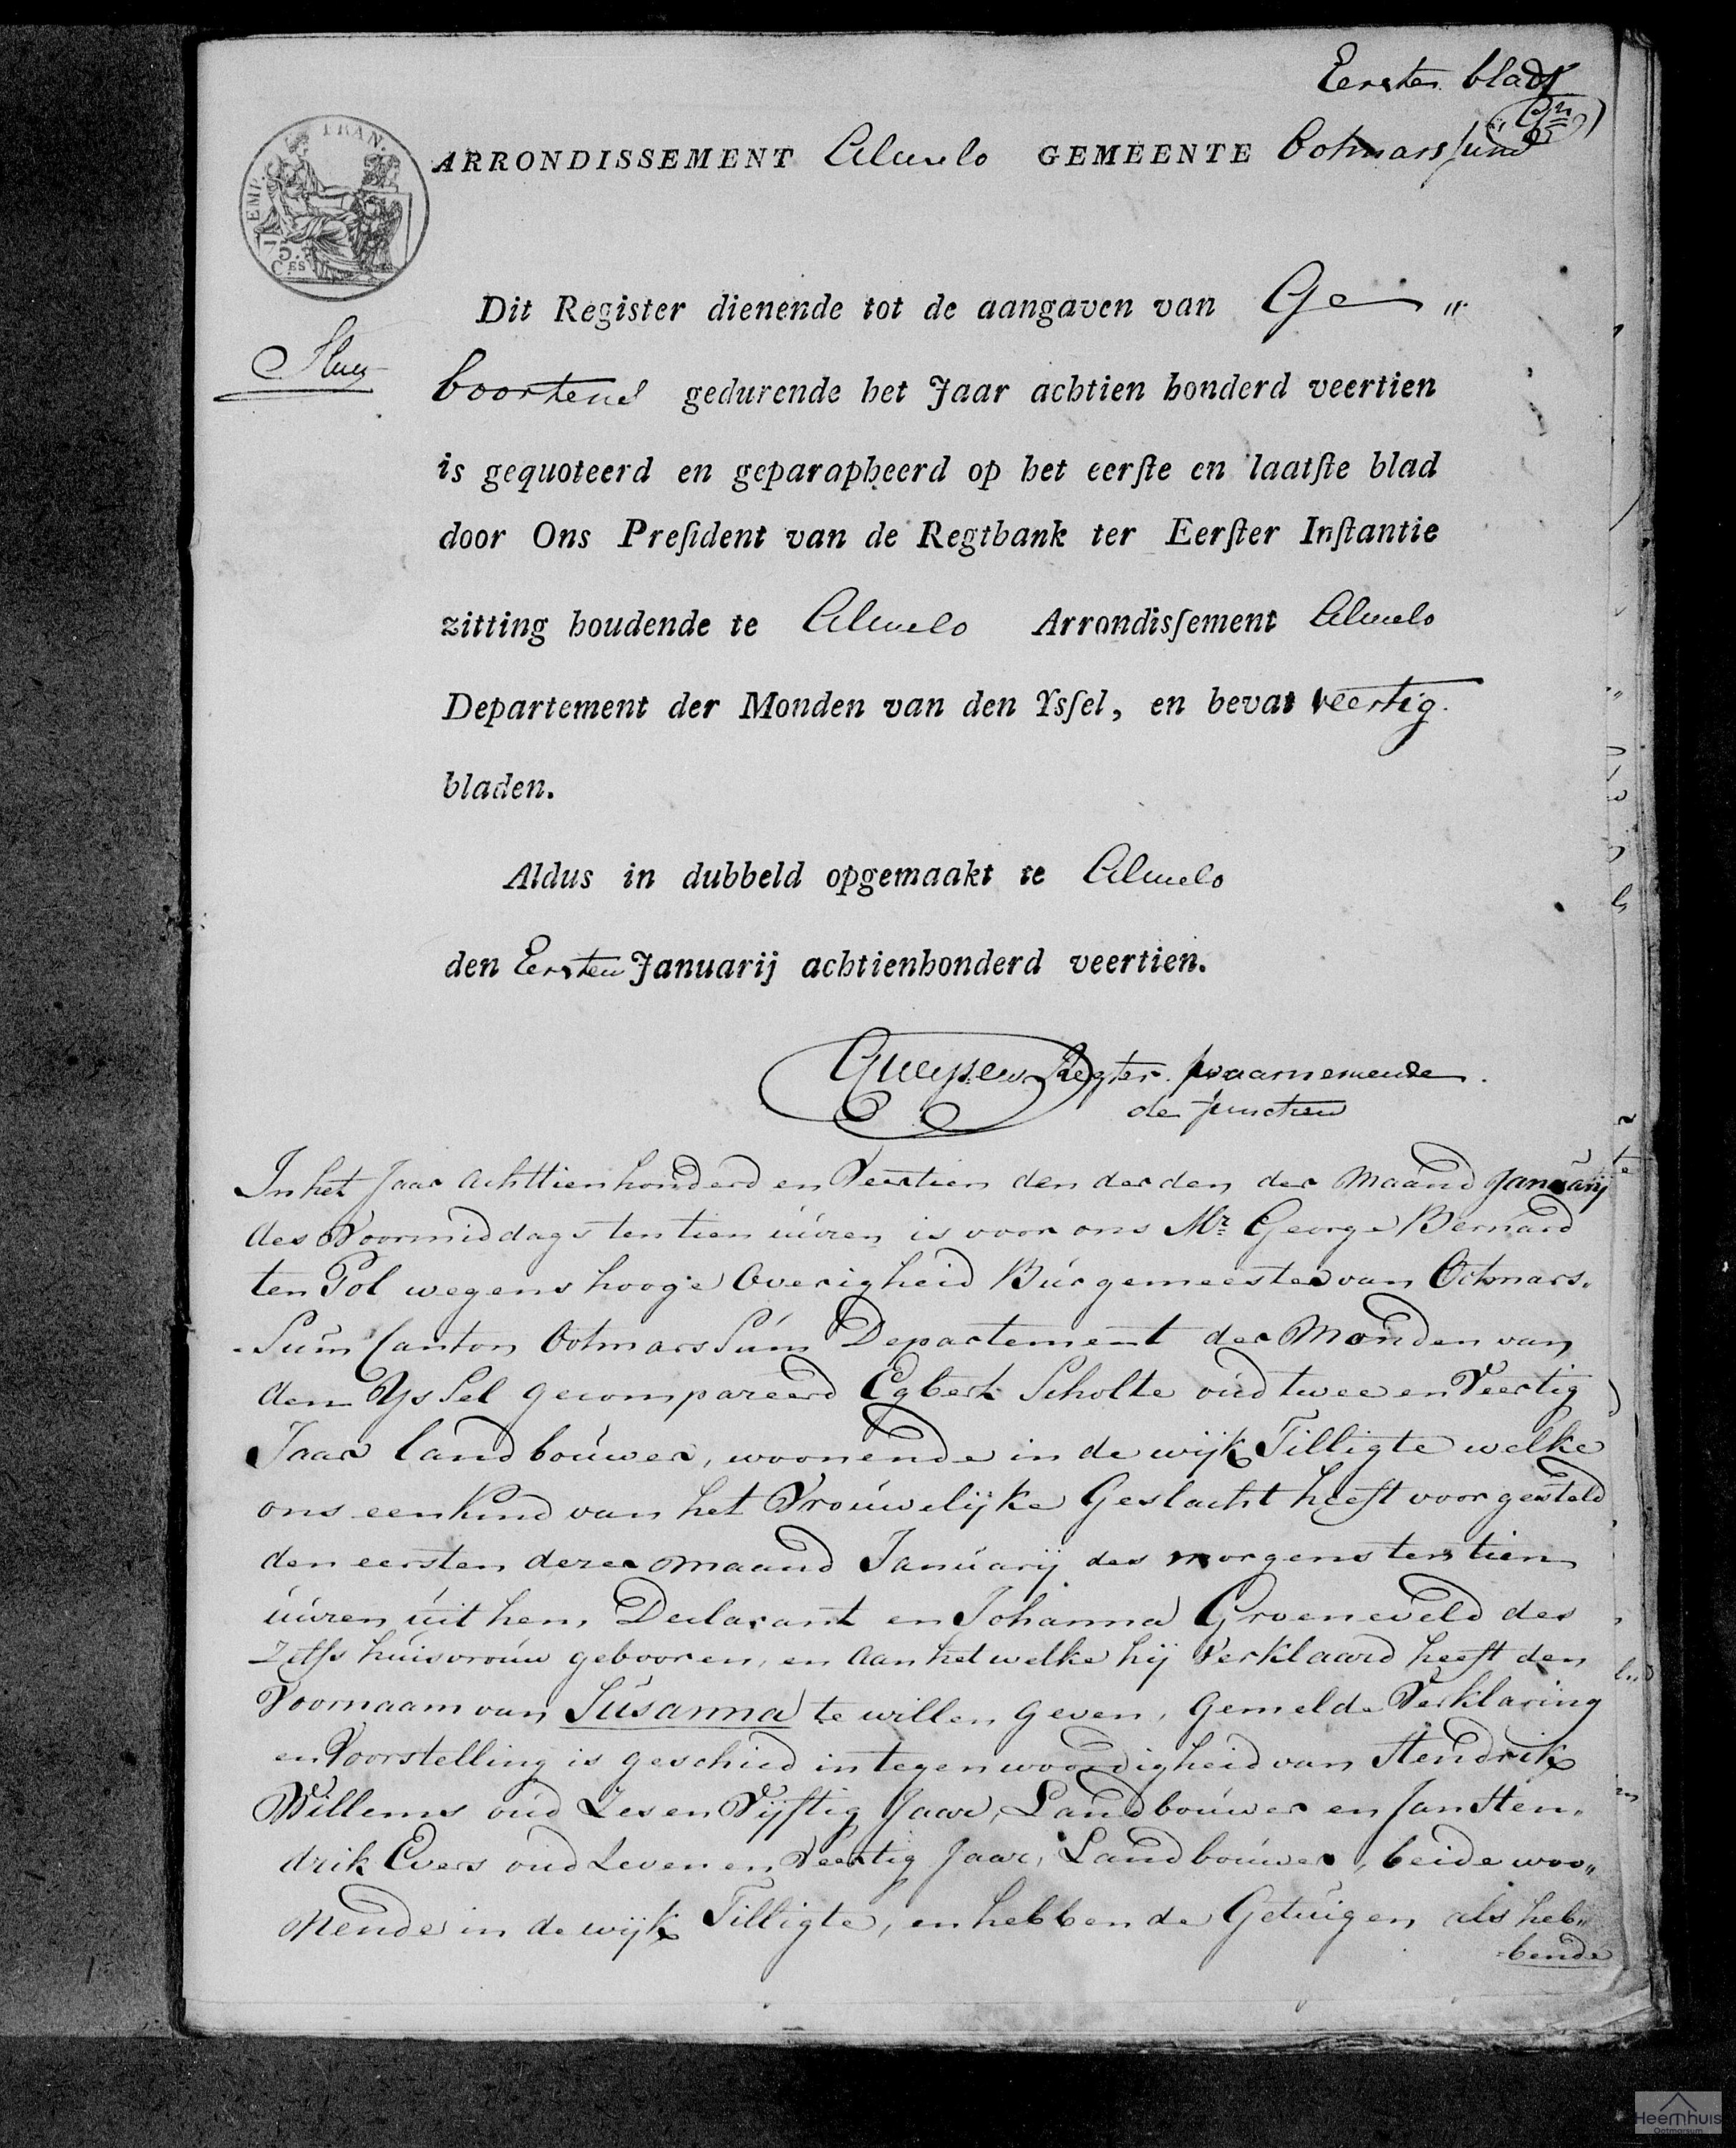 Eersten blad
EMP. FRAN.
75 CES
ARRONDISSEMENT Almelo GEMEENTE Ootmarssum
Dit Register dienende tot de aangaven van Ge„
boortens gedurende het Jaar achtien honderd veertien
is gequoteerd en geparapheerd op het eerſte en laatſte blad
door Ons Preſident van de Regtbank ter Eerſter Inſtantie
zitting houdende te Almelo Arrondisſement Almelo
Departement der Monden van den Ysſel, en bevat veertig
bladen.
Aldus in dubbeld opgemaakt te Almelo
den Eersten Januarij achtienhonderd veertien.
Regter waarnemende
de functien
In het Jaar Achttienhonderd en Veertien den derden der Maand Januarij
des Voormiddags ten tien úúren is voor ons Mr. George Bernard
ten Pol wegens hooge Overigheid Búrgemeester van Ootmars-
-Súm Canton OotmarsSúm Departement der Monden van
den YsSel gecompareerd Egbert Scholte oúd twee en Veertig
Jaar landboúwer, woonende in de wijk Tilligte welke
ons een Kind van het Vroúwelijke Geslacht heeft voorgesteld
den eersten dezer maand Janúarij des morgens ten tien
úúren úit hem Declarant en Johanna Groeneveld des
Zelfs húisvroúw gebooren, en aan het welke hij Verklaard heeft den
Voornaam van Súsanna te willen geven, gemelde Verklaring
en Voorstelling is geschied in tegenwoordigheid van Hendrik
Willems oúd Zes en Vijftig Jaar, Landboúwer en Jan Hen-
drik Evers oúd Zeven en Veertig Jaar, Landboúwer, beide woo„
nende in de wijk Tilligte, en hebben de Getúigen als heb„
-bende
Heemhuis
Ootmarsum